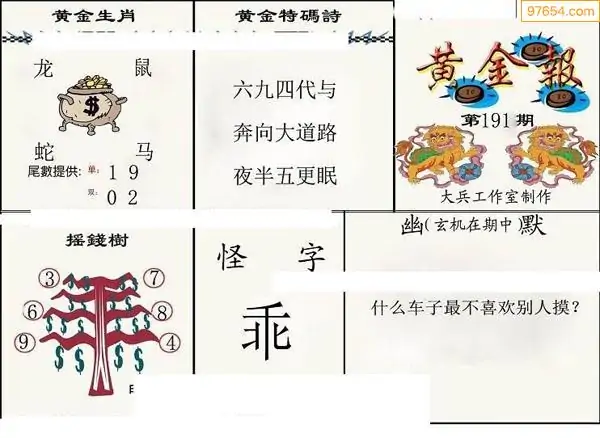 97654.com
黄金生肖
龙 鼠
$
蛇 马
尾數提供: 单: 1 9
双: 0 2
黄金特碼詩
六九四代与
奔向大道路
夜半五更眠
黄金報
第191期
大兵工作室制作
摇錢樹
③ ⑦
⑥ ⑧
⑨ ④
$ $ $ $ $ $ $ $ $ $ $ $
怪 字
乖
幽(玄机在期中)默
什么车子最不喜欢别人摸?